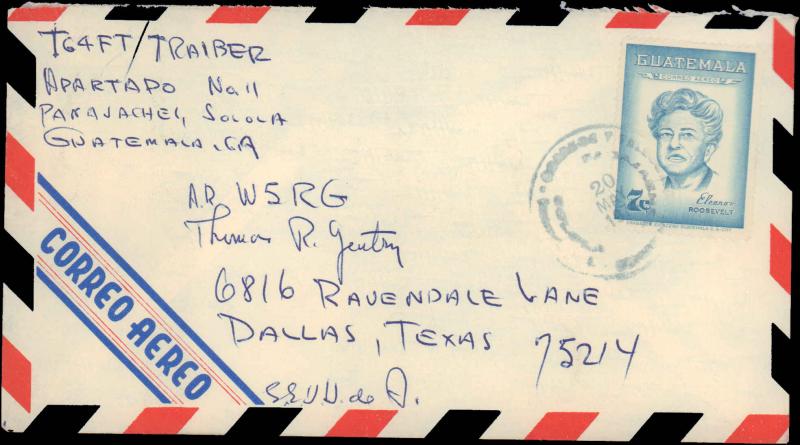 TG4FT / TRAIBER
APARTADO No 11
PANAJACHEL, SOLOLA
GUATEMALA, CA
A.R. W5RG
Thomas R. Gentry
6816 RAVENDALE LANE
DALLAS, TEXAS 75214
EE.UU. de A.
CORREO AEREO
GUATEMALA
CORREO AEREO
7c
Eleanor
ROOSEVELT
CORREOS
20